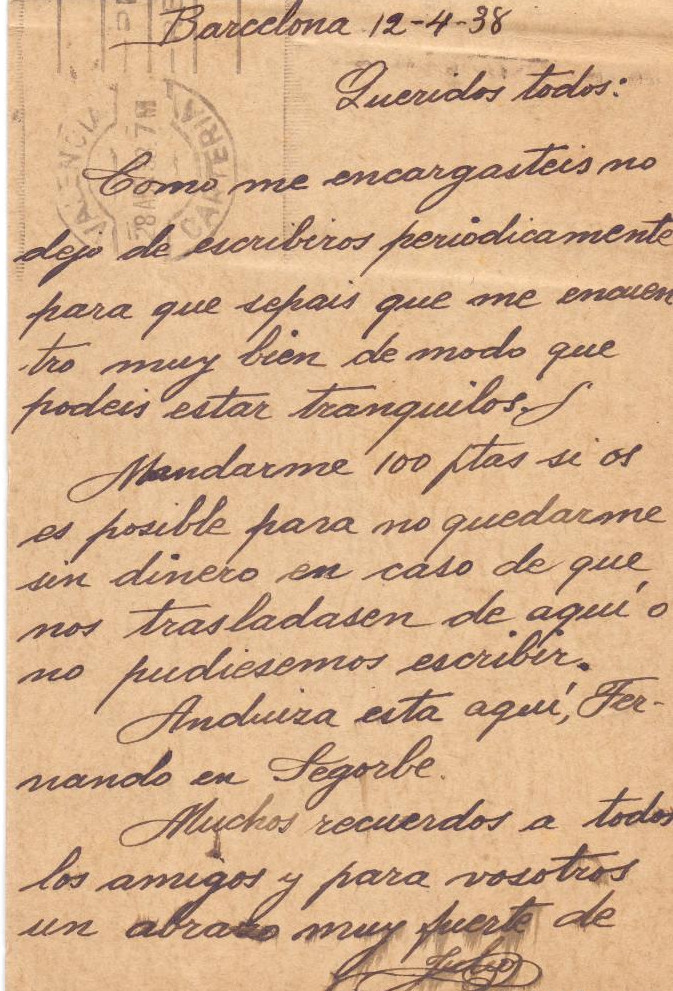 Barcelona 12-4-38
Queridos todos:
VALENCIA
CARTERIA
Como me encargasteis no
dejo de escribiros periódicamente
para que sepais que me encuen
tro muy bien de modo que
podeis estar tranquilos.
Mandarme 100 ptas si os
es posible para no quedarme
sin dinero en caso de que
nos trasladasen de aquí o
no pudiesemos escribir.
Anduiza esta aquí, Fer-
nando en Segorbe.
Muchos recuerdos a todos
los amigos y para vosotros
un abrazo muy fuerte de
Julio